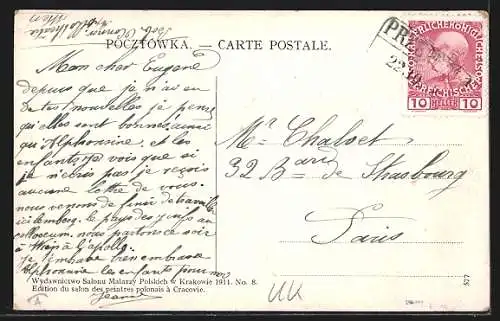 POCZTÓWKA. — CARTE POSTALE.
Mon cher Eugene
depuis que je n'ai eu
de tes nouvelles je pense
qu'elles sont bonnes ainsi
qu'Alphonsine et les
enfants je vois que si
je n'écris pas je reçois
aucune lettre de vous.
nous venons de finir de travailler
ici lemberg. le pays des juifs au
collosseum. nous partons ce soir
à Wien à l'apollo.
je t'embrasse bien embrasse
Alphonsine les enfants pour moi
Jeanne
PRZE
ÖSTERREICHISCHE POST
10 HELLER 10
Mr Chalset
32 Bard de Strasbourg
Paris
Wydawnictwo Salonu Malarzy Polskich w Krakowie 1911. No. 8.
Edition du salon des peintres polonais à Cracovie.
577
UK